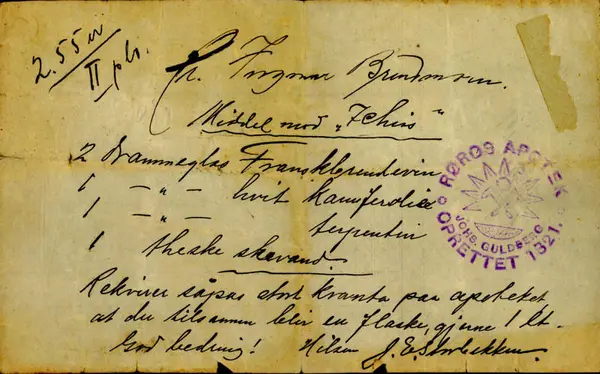 2.55 kr
II pk.
Hr. Ingmar Brendmoen.
Middel mod "Ichias"
2 Drammeglas Franskbrændevin
1 — „ — hvit kamferdraa
1 — „ — terpentin
1 theske skevand.
Rekvirer såpas stort kvanta paa apoteket
at du tilsammen blir en flaske, gjerne 1 lt.
God bedring! Hilsen J. E. Storbekken.
RØROS APOTEK
JOHS. GULDBERG
OPRETTET 1821.